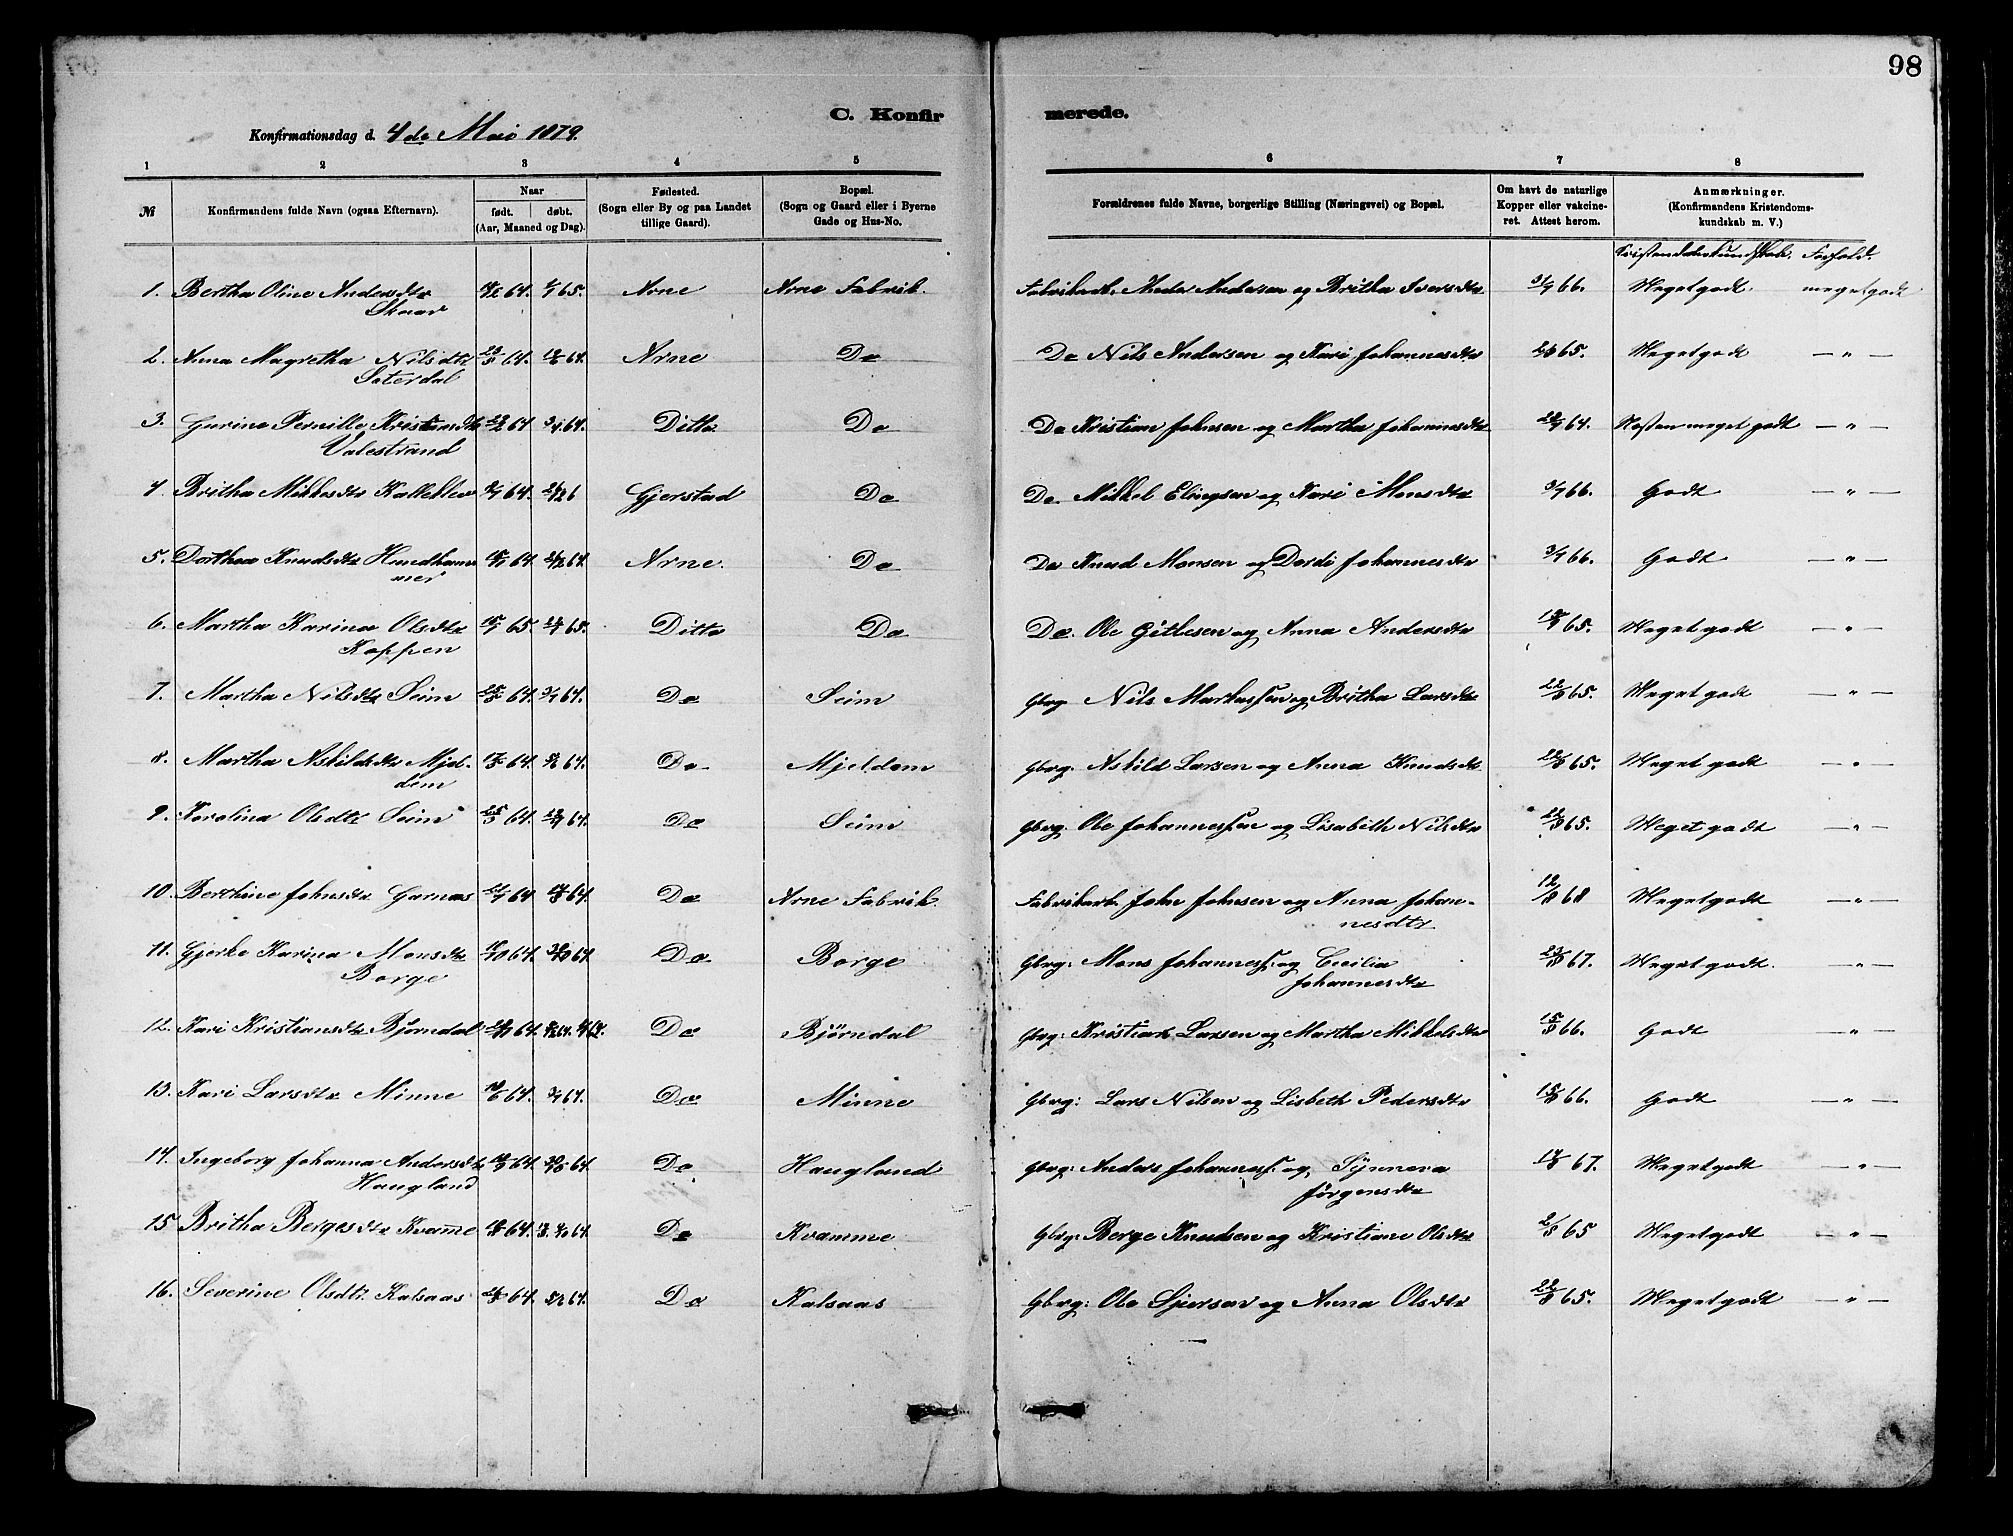 98
C. Konfir merede.
Konfirmationsdag d. 4de Mai 1879.
1 2 3 4 5 6 7 8
№ Konfirmandens fulde Navn (ogsaa Efternavn). Naar født. døbt. (Aar, Maaned og Dag). Fødested. (Sogn eller By og paa Landet tillige Gaard). Bopæl. (Sogn og Gaard eller i Byerne Gade og Hus-No. Forældrenes fulde Navne, borgerlige Stilling (Næringsvei) og Bopæl. Om havt de naturlige Kopper eller vakcineret. Attest herom. Anmærkninger. (Konfirmandens Kristendomskundskab m. V.)
Kristendomskundskab. Forhold.
1. Bertha Oline Andersdtr 64. 65. Arne Arne Fabrik. Fabrikarb. Anders Andersen og Britha Iversdtr 3/9 66. Meget godt meget godt
Skaar
2. Anna Magretha Nilsdtr 64. 64. Arne Do Do Nils Andersen og Kari Johannesdtr 65. Meget godt — " —
Saterdal
3. Gurine Pernille Kristiandtr 64 64. Ditto Do Do Kristian Johnsen og Martha Johannesdtr 64. Næsten meget godt — " —
Valestrand
4. Britha Mikkelsdtr Kalleklev 64. Gjerstad Do Do Mikkel Elingsen og Kari Monsdtr 3/9 66. Godt — " —
5. Dorthea Knudsdtr Hundham 64 64. Arne. Do Do Knud Monsen og Dordi Johannesdtr 3/9 66. Godt — " —
mer
6. Martha Karina Olsdtr 65. 65. Ditto Do Do. Ole Githesen og Anna Andersdtr 65. Meget godt — " —
Koppen
7. Martha Nilsdtr Seim 64. 64. Do Seim Gbrg. Nils Markussen og Britha Larsdtr 22/8 65. Meget godt — " —
8. Martha Askildsdtr Mjel- 64. 64. Do Mjeldem Gbrg. Askild Larsen og Anna Knudsdtr 22/8 65. Meget godt — " —
dem
9. Karolina Olsdtr Seim 64. 64. Do Seim Gbrg. Ole Johannessen og Lisabeth Nilsdtr 22/8 65. Meget godt — " —
10. Berthine Johnsdtr Garnæs 64 64. Do Arne Fabrik. Fabrikarb. John Johnsen og Anna Johan- 12/8 68 Meget godt — " —
nesdtr
11. Gjerke Karina Monsdtr 64. 64. Do Borge Gbrg: Mons Johanness. og Cecilia 67. Meget godt. — " —
Borge Johannesdtr
12. Kari Kristiansdtr Bjørndal 64. 64. Do Bjørndal Gbrg: Kristian Larsen og Martha Mikkelsdtr 15/8 66. Godt — " —
13. Kari Larsdtr Minne 64. 64. Do Minne Gbrg: Lars Nilsen og Lisbeth Pedersdtr 15/8 66. Godt — " —
14. Ingeborg Johanna Andersdtr 64. 64. Do Haugland Gbrg: Anders Johanness. og Synneva 67. Meget godt — " —
Haugland Jørgensdtr
15 Britha Bergesdtr Kvamme 64. 64. Do Kvamme Gbrg: Berge Knudsen og Kristiane Olsdtr 2/8 65 Meget godt — " —
16. Severine Olsdtr. Kalsaas 64. 64. Do Kalsaas Gbrg: Ole Sjursen og Anna Olsdtr 22/8 65. Meget godt — " —